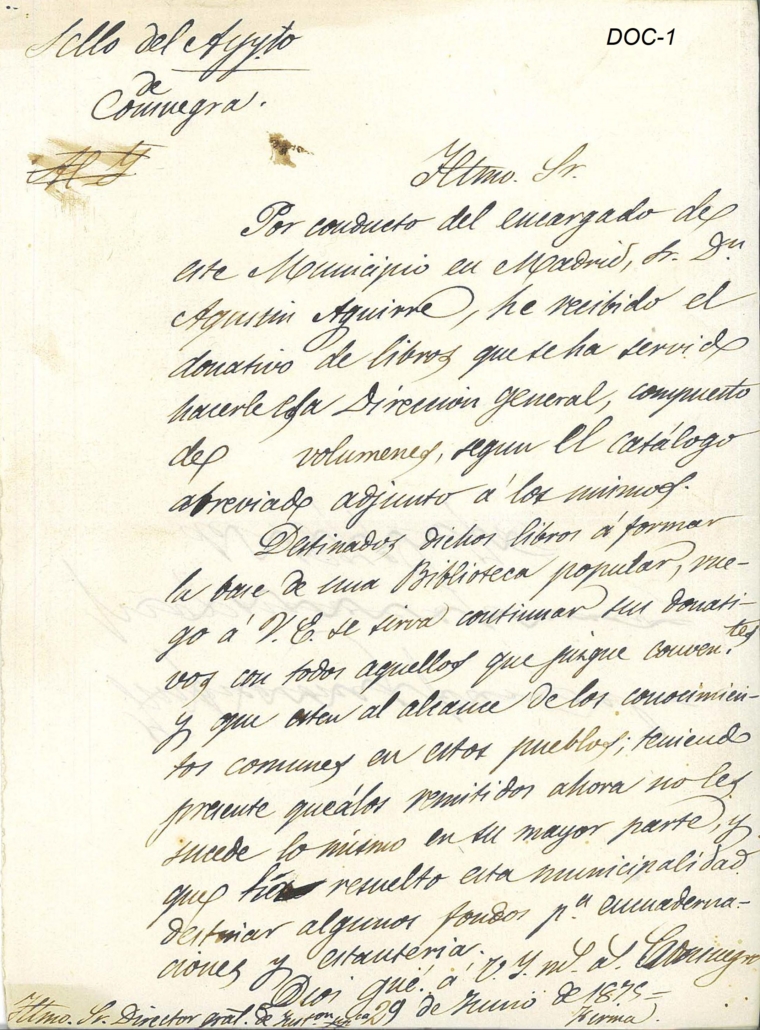 DOC-1
Sello del Ayyto
de
Consuegra.
Iltmo. Sr.
Por conducto del encargado de
este Municipio en Madrid, Sr. Dn
Agustin Aguirre, he recibido el
donativo de libros que se ha servido
hacerle esa Dirección general, compuesto
de volumenes, segun el catálogo
abreviado adjunto á los mismos.
Destinados dichos libros á formar
la base de una Biblioteca popular, rue-
go á V.E. se sirva continuar sus donati-
vos con todos aquellos que juzgue conven.tes
y que esten al alcance de los conocimien-
tos comunes en estos pueblos; teniendo
presente que á los remitidos ahora no les
sucede lo mismo en su mayor parte, y
que ha resuelto esta municipalidad
destinar algunos fondos pa encuaderna-
ciones y estanteria.
Dios gue. á V.I. ms. as. Consuegra
29 de Junio de 1875=
Firma.
Iltmo. Sr. Director gral. de Inston pbca